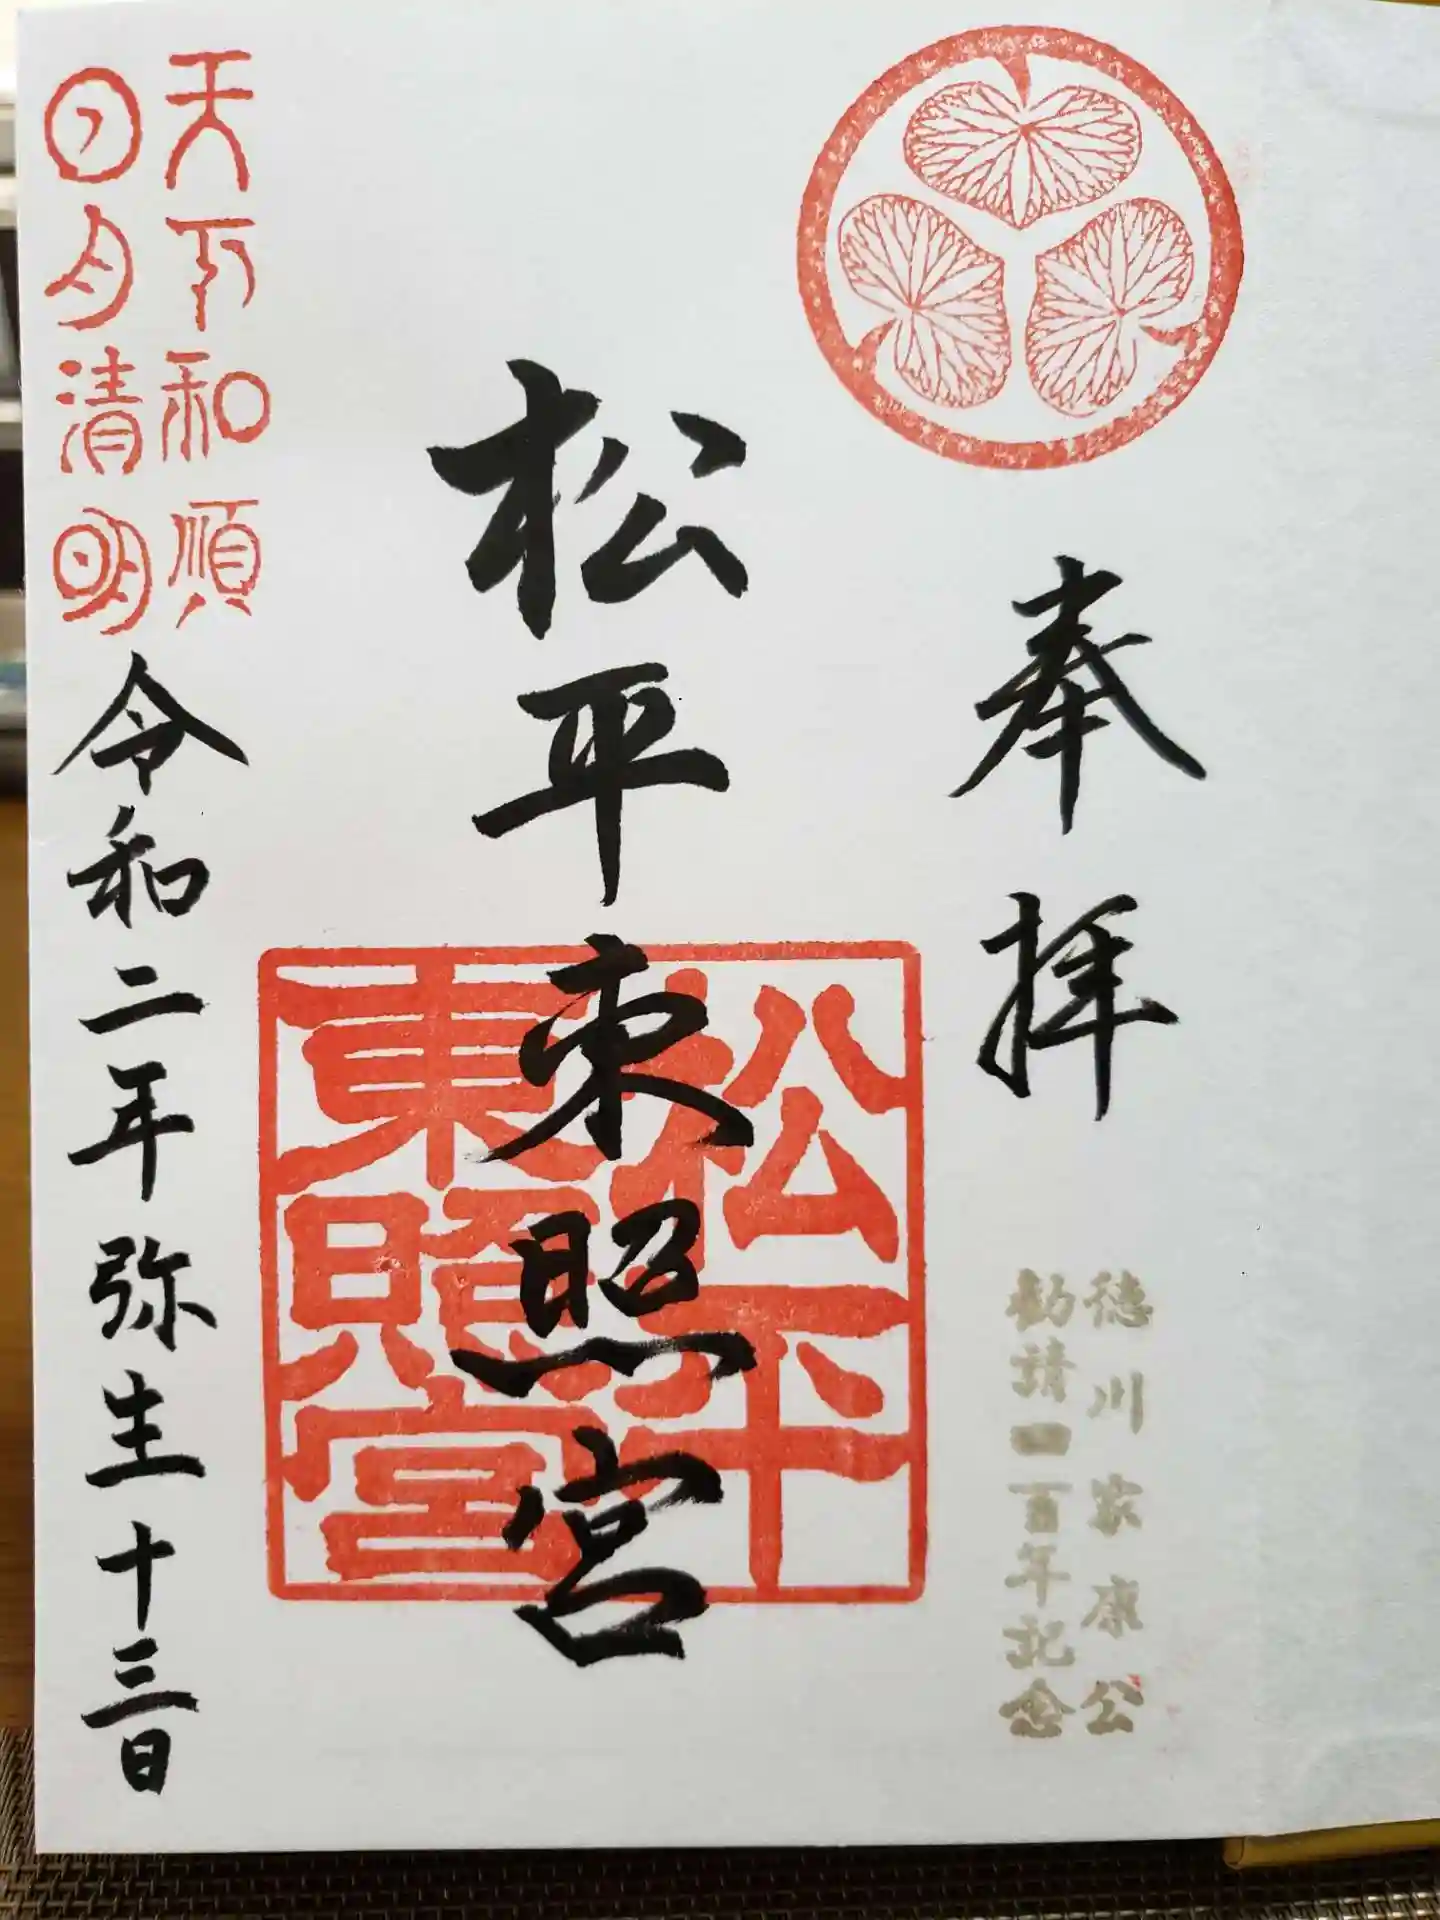 奉拝
徳川家康公
勧請四百年記念
松平東照宮
松平
東照宮
天下和順
日月清明
令和二年弥生十三日